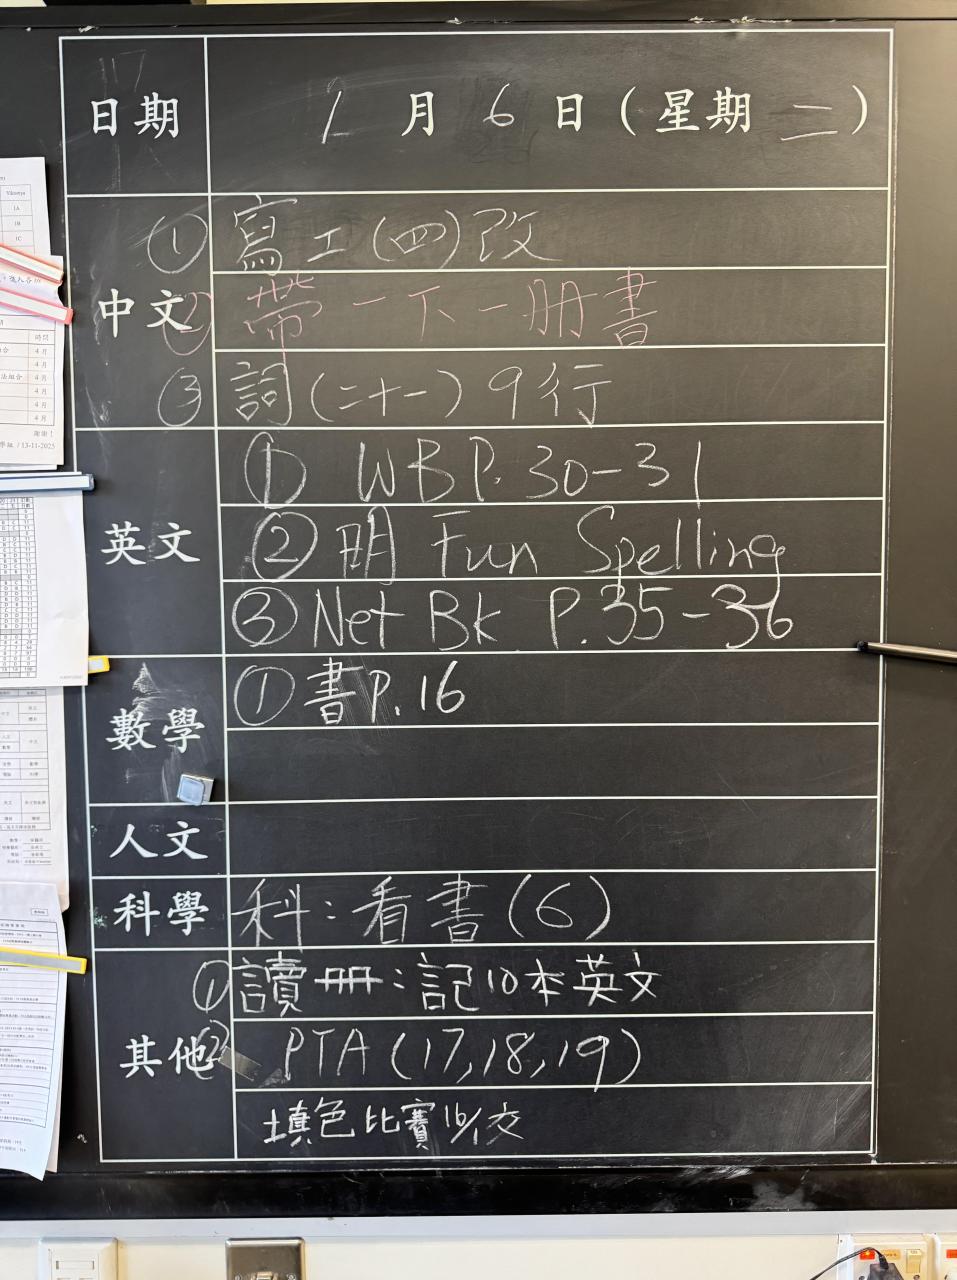 日期 1 月 6 日 (星期 二)
中文
① 寫工(四)改
② 帶一下一冊書
③ 詞(二十一) 9行
英文
① WB P.30-31
② 明 Fun Spelling
③ Net Bk P.35-36
數學
① 書P.16
人文
科學
科:看書(6)
其他
① 讀冊:記10本英文
② PTA (17,18,19)
填色比賽 交
時間
4 月
4 月
4 月
4 月
4 月
4 月
謝謝!
/ 13-11-2025
1A
1B
1C